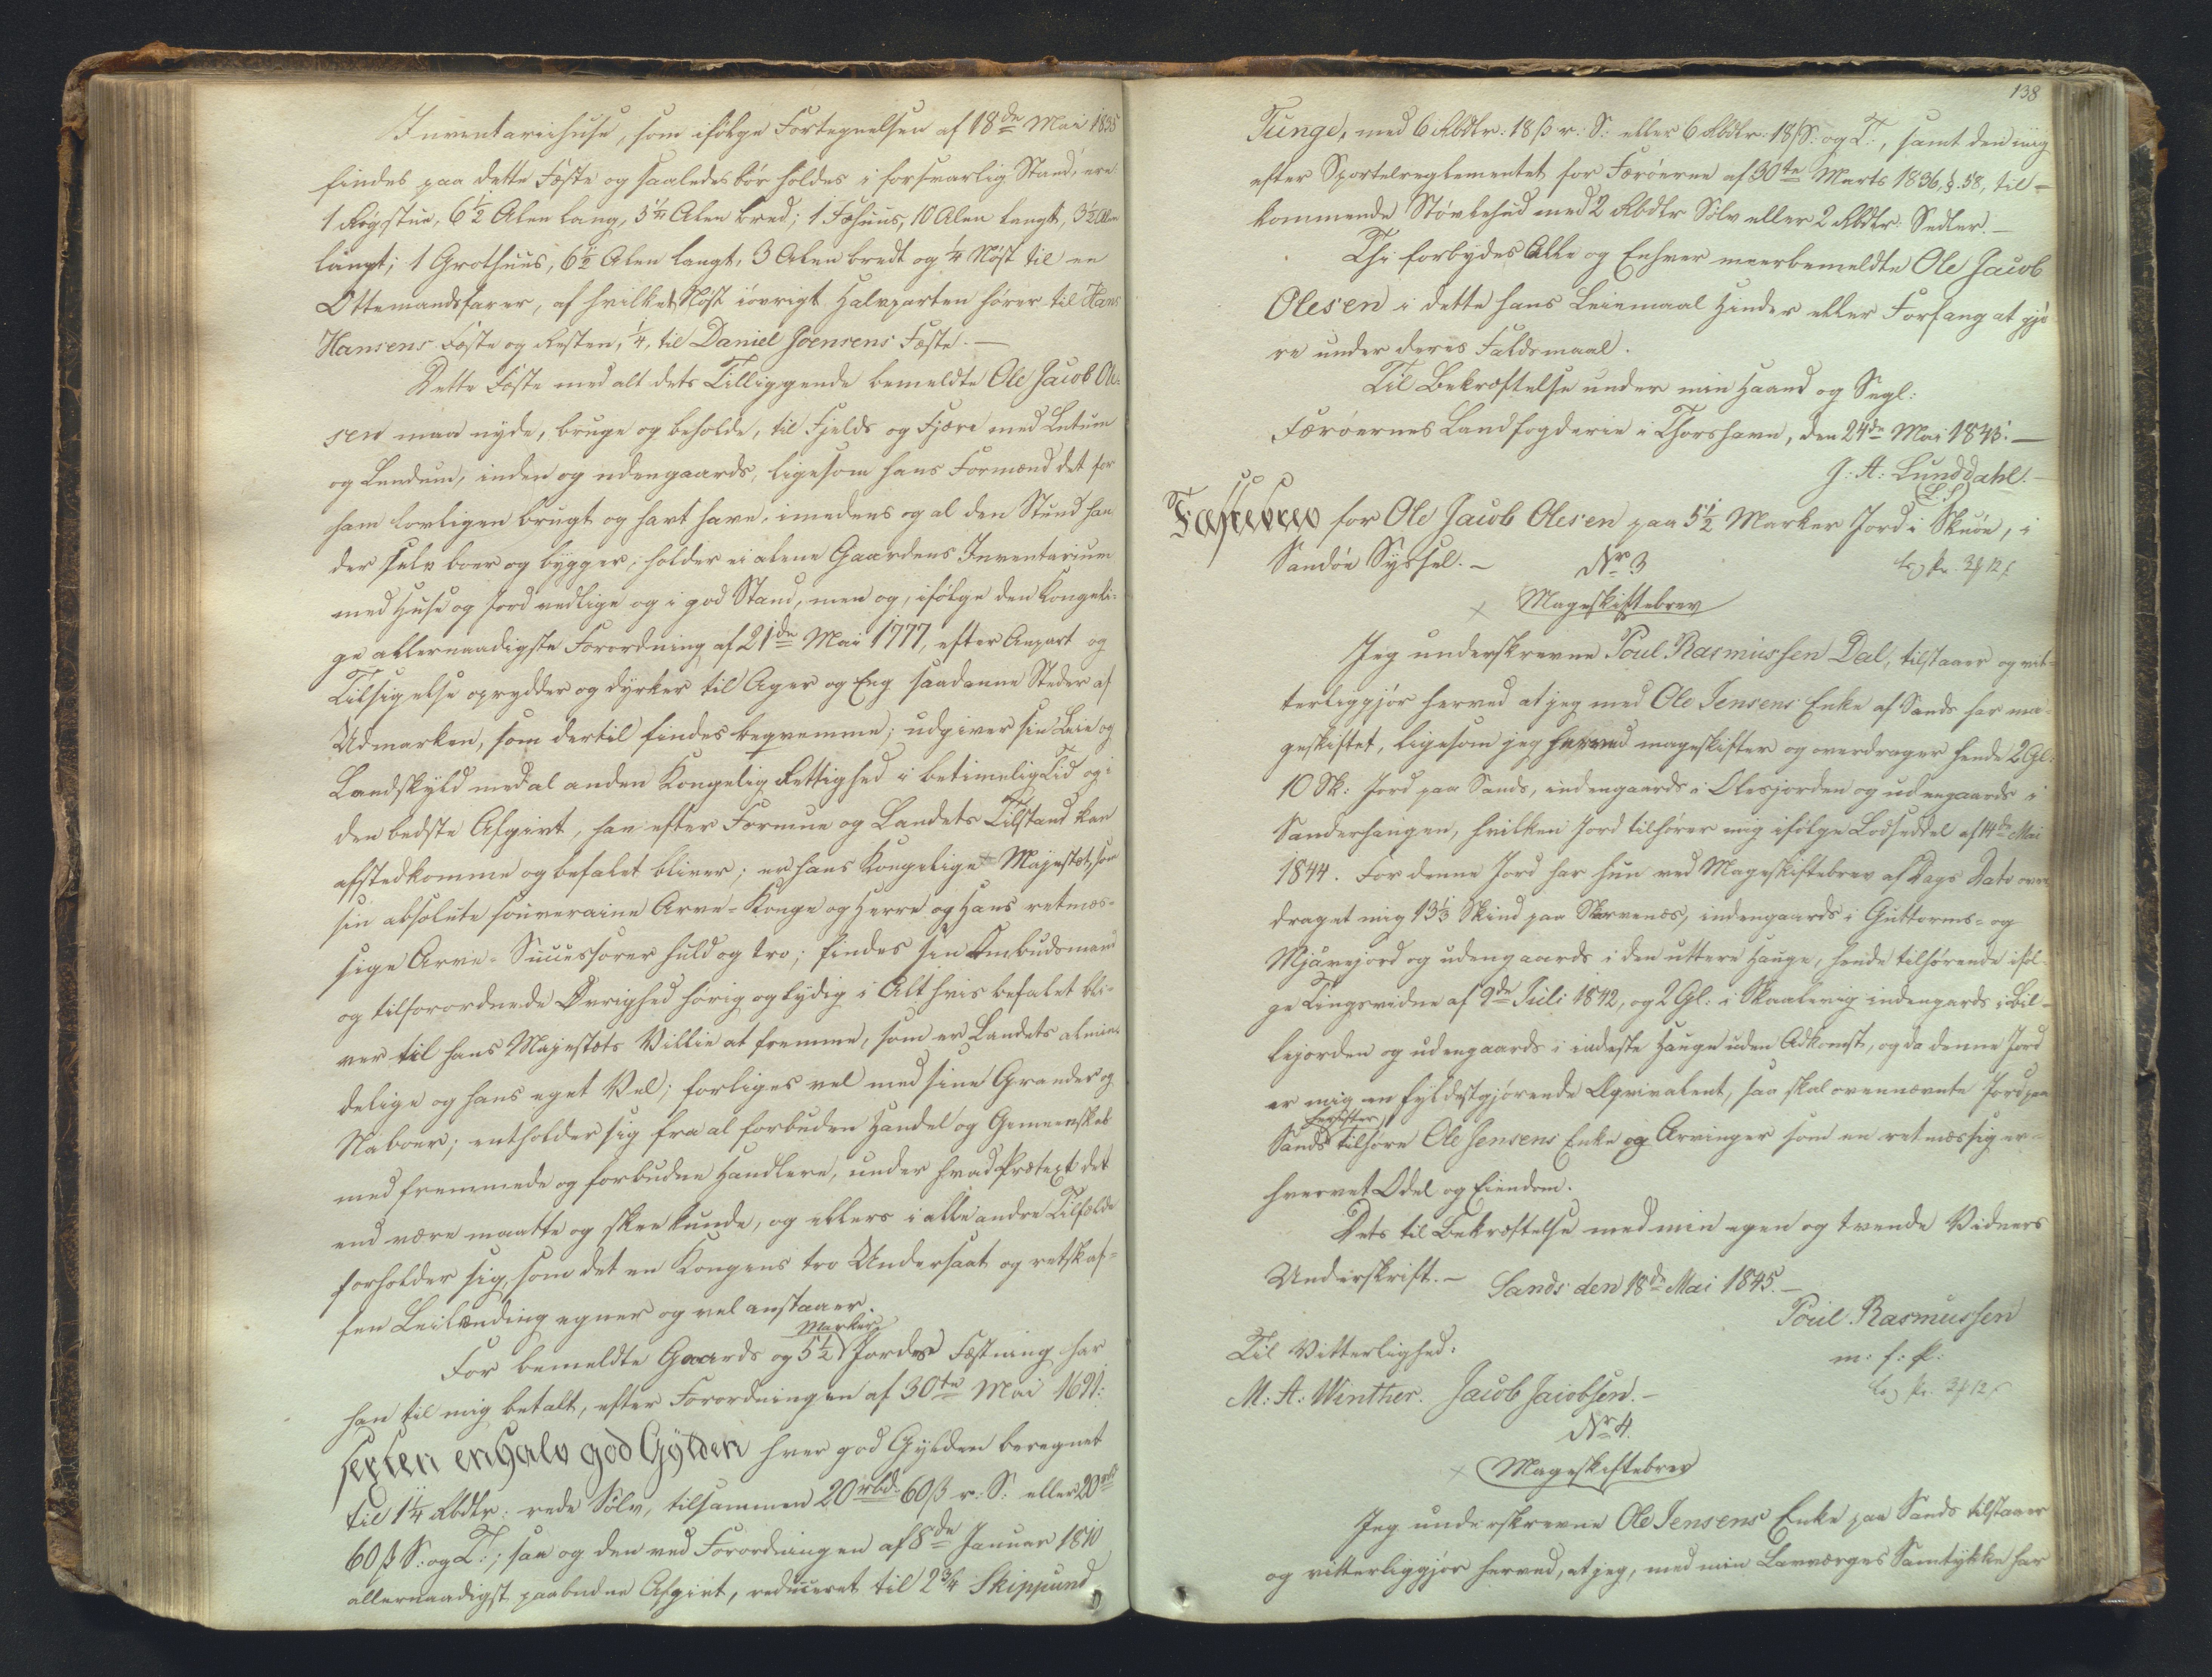 Inventariehuse, som ifølge Fortegnelsen af 18de Mai 1835
findes paa dette Fæste og saaledes bør holdes i forsvarlig Stand, ere
1 Røgstue, 6½ Alen lang, 5¼ Alen bred; 1 Fæhuus, 10 Alen langt, 3½ Alen
langt; 1 Grothuus, 6½ Alen langt, 3 Alen bredt og ¼ Nøst til en
Ottemandsfarer, af hvilket Nøst iøvrigt Halvparten hører til Hans
Hansens Fæste og Resten, ¼, til Daniel Joensens Fæste. —
Dette Fæste med alt dets Tilliggende bemeldte Ole Jacob Ole-
sen maa nyde, bruge og beholde, til Fjelds og Fjære med Lutum
og Lundum, inden og udengaards, ligesom hans Formænd det for
ham lovligen brugt og havt have, imedens og al den Stund han
der selv boer og bygger; holder ei alene Gaardens Inventarium
med Huse og Jord vedlige og i god Stand, men og, ifølge den Kongeli-
ge allernaadigste Forordning af 21de Mai 1777, efter Anpart og
Tilsigelse oprydder og dyrker til Ager og Eng saadanne Steder af
Udmarken, som dertil findes beqvemme; udgiver sin Leie og
Landskyld med al anden Kongelig Rettighed i betimelig Tid og i
den bedste Afgivt, han efter Formue og Landets Tilstand kan
afstedkomme og befalet bliver; er hans Kongelige Majestæt, som
sin absolute souveraine Arve-Konge og Herre og Hans retmæs-
sige Arve-Successorer huld og tro; findes sin Ombudsmand
og tilforordnede Øvrighed hørig og lydig i Alt hvis befalet bli-
ver til hans Majestæts Villie at fremme, som er Landets almin-
delige og hans eget Vel; forliges vel med sine Grander og
Naboer; entholder sig fra al forbuden Handel og Gemeenskab
med fremmede og forbudne Handlere, under hvad Prætext det
end være maatte og skee kunde, og ellers i alle andre Tilfælde
forholder sig, som det en Kongens tro Undersaat og retskaf-
fen Leilænding egner og vel anstaaer.
For bemeldte Gaards og 5½ Marker Jordes Fæstning har
han til mig betalt, efter Forordningen af 30te Mai 1691:
sexten en halv god Gylden hver god Gylden beregnet
til 1¼ Rbdlr: rede Sølv, tilsammen 20 rbd: 60 ß r: S: eller 20 rbd
60 ß S: og T:; saa og den ved Forordningen af 8de Januar 1810
allernaadigst paabudne Afgivt, reduceret til 2¾ Skippund
138
Tunge, med 6 Rbdlr: 18 ß r: S: eller 6 Rbdlr: 18 ß S: og T:, samt den mig
efter Sportelreglementet for Færøerne af 30te Marts 1836, §. 58, til-
kommende Støvlehud med 2 Rbdlr Sølv eller 2 Rbdlr: Sedler. —
Thi forbydes Alle og Enhver meerbemeldte Ole Jacob
Olesen i dette hans Leiemaal Hinder eller Forfang at gjø-
re under deres Faldsmaal.
Til Bekræftelse under min Haand og Segl:
Færøernes Landfogderie i Thorshavn, den 24de Mai 1845. —
J: A: Lunddahl. —
(L. S)
Fæstebrev for Ole Jacob Olesen paa 5½ Marker Jord i Skuøe, i
Sandøe Syssel. —
Nr 3
Mageskiftebrev
Jeg underskrevne Poul Rasmussen Dal, tilstaaer og vit-
terliggjør herved at jeg med Ole Jensens Enke af Sands har ma-
geskiftet, ligesom jeg herved mageskifter og overdrager hende 2 Gl:
10 Sk: Jord paa Sands, indengaards i Olesjorden og udengaards i
Sanderhaugen, hvilken Jord tilhører mig ifølge Lodseddel af 14de Mai
1844. For denne Jord har hun ved Mageskiftebrev af Dags Dato over-
draget mig 13⅓ Skind paa Skarvenæs, indengaards i Guttorms- og
Mjåvejord og udengaards i den yttere Hauge, hende tilhørende iføl-
ge Tingsvidne af 9de Juli 1842, og 2 Gl: i Skaalevig indengards i Lil-
lejorden og udengaards i inderste Hauge uden Adkomst, og da denne Jord
er mig en fyldestgjørende Æqvivalent, saa skal ovennævnte Jord paa
Sands herefter tilhøre Ole Jensens Enke og Arvinger som en retmæssig er-
hvervet Odel og Eiendom.
Dets til Bekræftelse med min egen og tvende Vidners
Underskrift. —
Sands den 18de Mai 1845. —
Poul Rasmussen
m: f: P:
Til Vitterlighed:
M: A: Winther. Jacob Jacobsen. —
Nr 4.
Mageskiftebrev
Jeg underskrevne Ole Jensens Enke paa Sands tilstaaer
og vitterliggjør herved, at jeg, med min Laværges Samtykke har